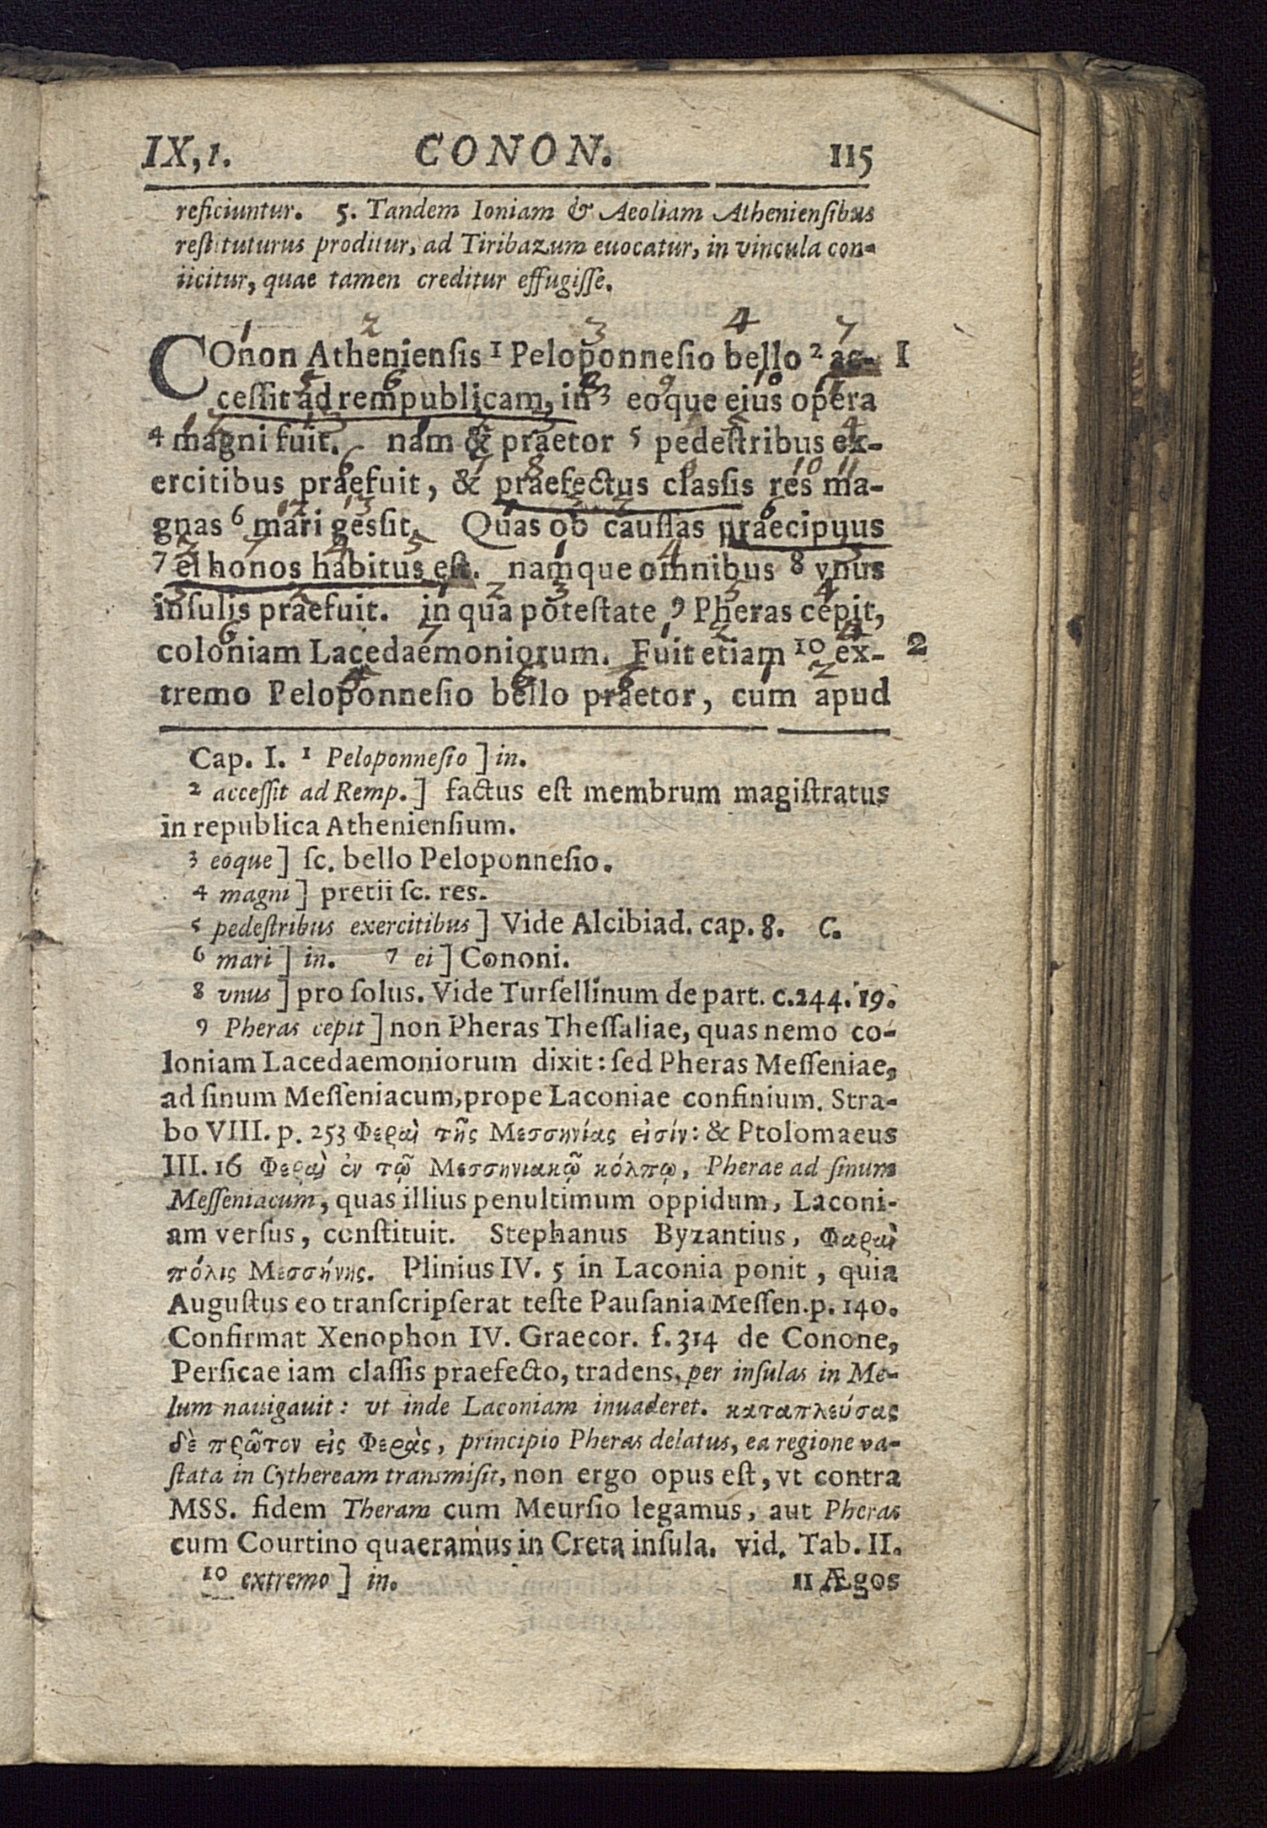 IX, 1. CONON. 115
reficiuntur. 5. Tandem Ioniam & Aeoliam Atheniensibus
restituturus proditur, ad Tiribazum euocatur, in vincula con-
iicitur, quae tamen creditur effugisse.
COnon Atheniensis 1 Peloponnesio bello 2 ac- I
cessit ad rempublicam, in 3 eoque eius opera
4 magni fuit. nam & praetor 5 pedestribus ex-
ercitibus praefuit, & praefectus classis res ma-
gnas 6 mari gessit. Quas ob caussas praecipuus
7 ei honos habitus est. namque omnibus 8 vnus
insulis praefuit. in qua potestate 9 Pheras cepit,
coloniam Lacedaemoniorum. Fuit etiam 10 ex- 2
tremo Peloponnesio bello praetor, cum apud
Cap. I. 1 Peloponnesio ] in.
2 accessit ad Remp. ] factus est membrum magistratus
in republica Atheniensium.
3 eoque ] sc. bello Peloponnesio.
4 magni ] pretii sc. res.
5 pedestribus exercitibus ] Vide Alcibiad. cap. 8. C.
6 mari ] in. 7 ei ] Cononi.
8 vnus ] pro solus. Vide Tursellinum de part. c. 244. 19.
9 Pheras cepit ] non Pheras Thessaliae, quas nemo co-
loniam Lacedaemoniorum dixit: sed Pheras Messeniae,
ad sinum Messeniacum, prope Laconiae confinium. Stra-
bo VIII. p. 253 Φεραὶ τῆς Μεσσηνίας εἰσίν: & Ptolomaeus
III. 16 Φεραὶ ἐν τῷ Μεσσηνιακῷ κόλπῳ, Pherae ad sinum
Messeniacum, quas illius penultimum oppidum, Laconi-
am versus, constituit. Stephanus Byzantius, Φαραὶ
πόλις Μεσσήνης. Plinius IV. 5 in Laconia ponit, quia
Augustus eo transcripserat teste Pausania Messen. p. 140.
Confirmat Xenophon IV. Graecor. f. 314 de Conone,
Persicae iam classis praefecto, tradens, per insulas in Me-
lum nauigauit: vt inde Laconiam inuaderet. καταπλεύσας
δὲ πρῶτον εἰς Φερὰς, principio Pheras delatus, ea regione va-
stata in Cytheream transmisit, non ergo opus est, vt contra
MSS. fidem Theram cum Meursio legamus, aut Pheras
cum Courtino quaeramus in Creta insula. vid. Tab. II.
10 extremo ] in. 11 Ægos